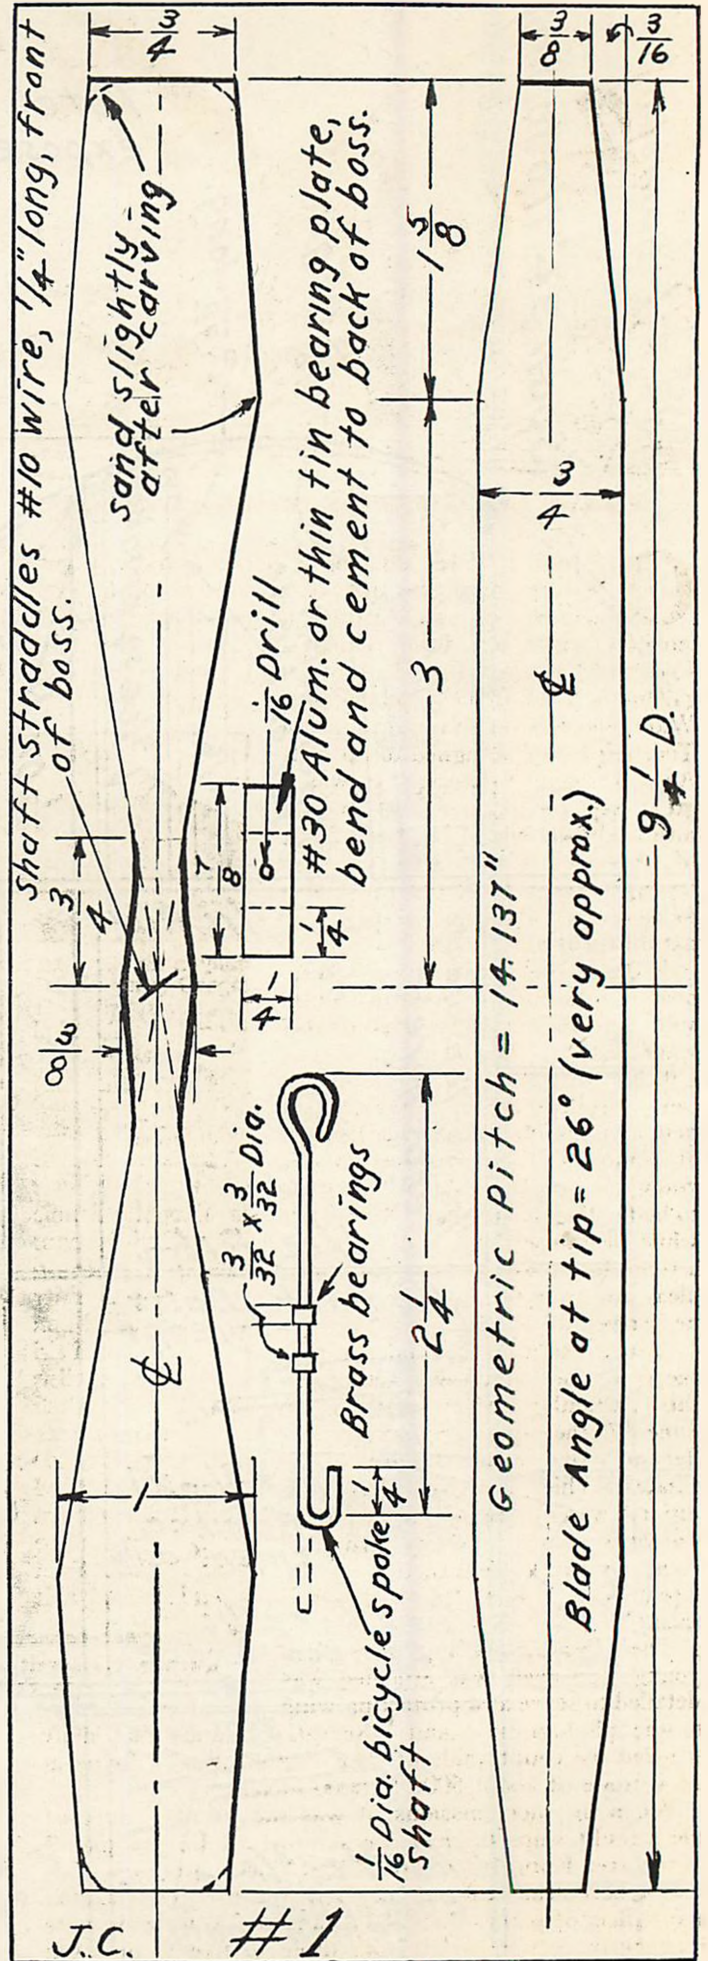 Shaft straddles #10 wire, 1/4" long, front
of boss.
3/4
sand slightly
after carving
3/4
3/8
1
℄
7/8
1/16 Drill
1/4
1/4
#30 Alum. or thin tin bearing plate,
bend and cement to back of boss.
3/32 x 3/32 Dia.
Brass bearings
2 1/4
1/4
1/16 Dia. bicycle spoke
shaft
3/8
3/16
1 5/8
3
3/4
℄
Geometric Pitch = 14.137"
Blade Angle at tip = 26° (very approx.)
9 1/4 D.
J.C.
#1